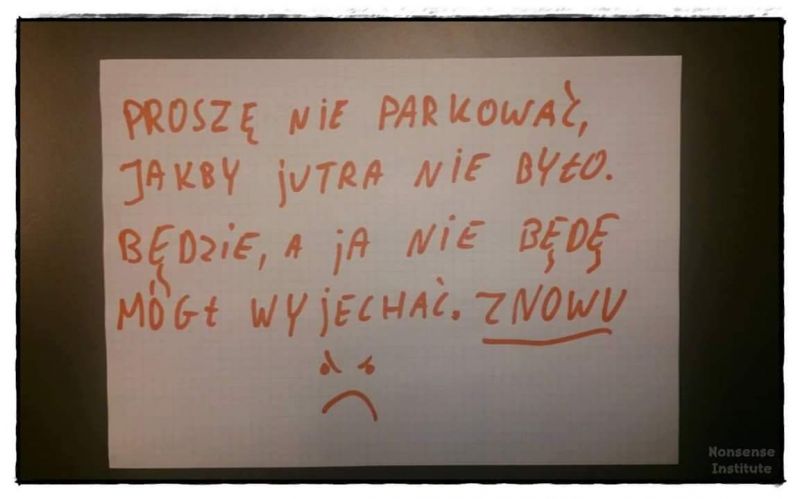 PROSZĘ NIE PARKOWAĆ,
JAKBY jUTRA NiE BYŁO.
BĘDZiE, A jA NiE BĘDĘ
MÓGŁ WYjECHAĆ. ZNOWU
Nonsense
Institute